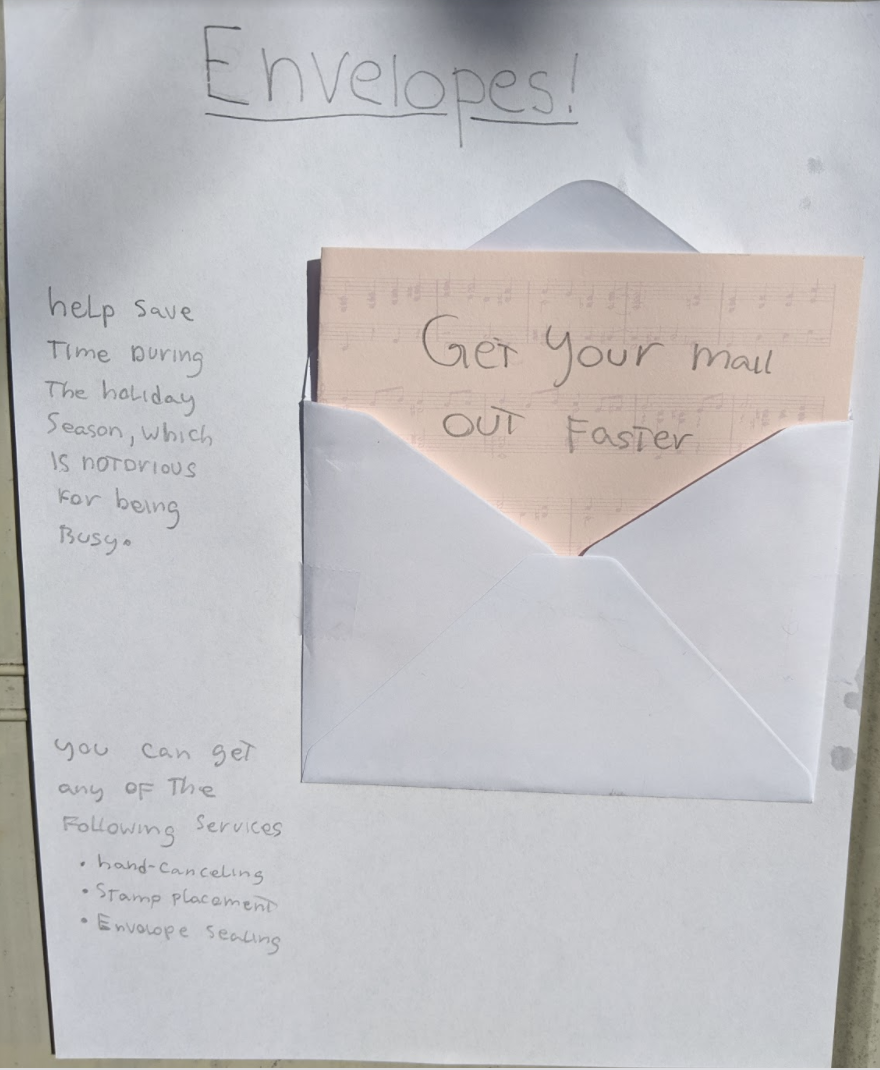 Envelopes!
help save
Time During
The holiday
Season, which
Is notorious
For being
Busy.
Get your mail
out Faster
you can get
any of The
Following Services
• hand-canceling
• Stamp placement
• Envelope Sealing